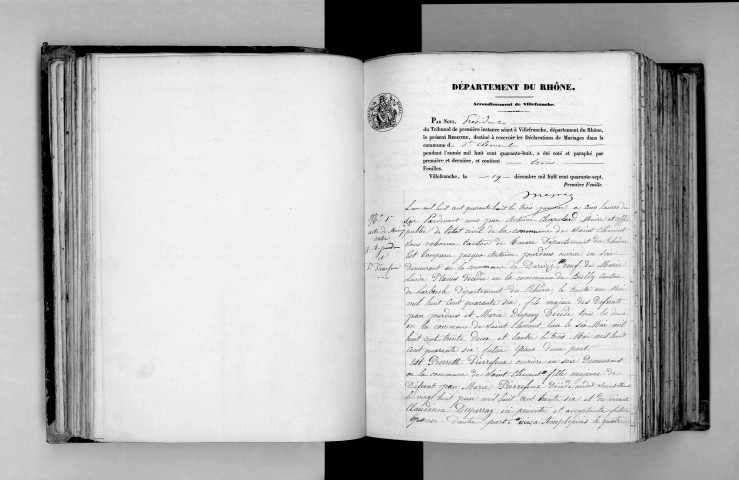 DÉPARTEMENT DU RHÔNE.
Arrondissement de Villefranche.
PAR NOUS, Président
du Tribunal de première instance séant à Villefranche, département du Rhône,
le présent REGISTRE, destiné à recevoir les Déclarations de Mariages dans la
commune de St Clément
pendant l'année mil huit cent quarante-huit, a été coté et paraphé par
première et dernière, et contient trois
Feuilles.
Villefranche, le 19 décembre mil huit cent quarante-sept.
Première Feuille.
No 1er
acte de
entre
et
L'an mil huit cent quarante huit le trois janvier a cinq heures du
Pardevant nous jean Antoine Maire et officier
public de l'état civil de la commune de Saint Clément
sous valsonne Canton de Tarare Département du Rhône
Est Comparu jacque Antoine jourdan ouvrier en soie
Demeurant en la commune de veuf de Marie
décédée en la commune de Bully canton
de Larbresle Département du Rhône, le trente un Mai
mil huit Cent quarante six, fils majeur des défunts
jean jourdan et Marie Dupuy Décédé tous les deux
en la commune de Saint Clément, l'un le six Mai mil
huit cent trente deux et l'autre le trois Mai mil huit
Cent quarante six futur Epoux d'une part
Est Pierrette ouvrière en soie Demeurant
en la commune de Saint Clément fille majeure de
Défunt jean Marie décédé audit Saint Clément
le vingt huit mil huit cent trente six et de vivante
Claudine ici présente et acceptante future
épouse d'autre part Amplepuis le quatre